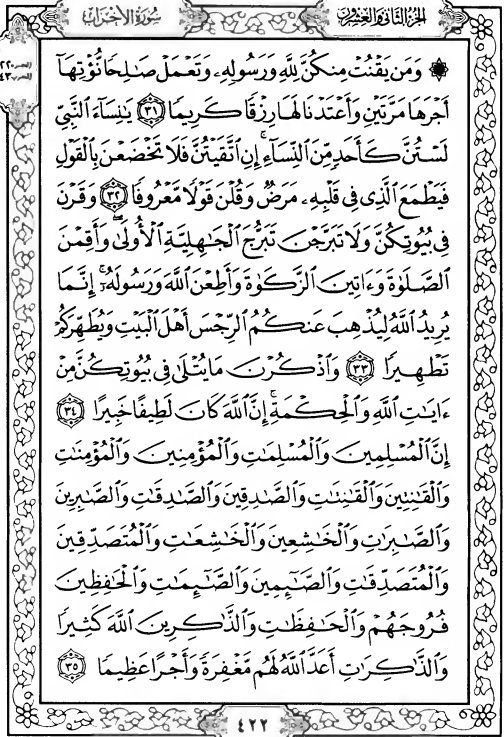 الجزء الثاني والعشرون
سورة الأحزاب
۞ وَمَن يَقْنُتْ مِنكُنَّ لِلَّهِ وَرَسُولِهِۦ وَتَعْمَلْ صَٰلِحًا نُّؤْتِهَآ
أَجْرَهَا مَرَّتَيْنِ وَأَعْتَدْنَا لَهَا رِزْقًا كَرِيمًا ٣١ يَٰنِسَآءَ ٱلنَّبِىِّ
لَسْتُنَّ كَأَحَدٍ مِّنَ ٱلنِّسَآءِ ۚ إِنِ ٱتَّقَيْتُنَّ فَلَا تَخْضَعْنَ بِٱلْقَوْلِ
فَيَطْمَعَ ٱلَّذِى فِى قَلْبِهِۦ مَرَضٌ وَقُلْنَ قَوْلًا مَّعْرُوفًا ٣٢ وَقَرْنَ
فِى بُيُوتِكُنَّ وَلَا تَبَرَّجْنَ تَبَرُّجَ ٱلْجَٰهِلِيَّةِ ٱلْأُولَىٰ ۖ وَأَقِمْنَ
ٱلصَّلَوٰةَ وَءَاتِينَ ٱلزَّكَوٰةَ وَأَطِعْنَ ٱللَّهَ وَرَسُولَهُۥٓ ۚ إِنَّمَا
يُرِيدُ ٱللَّهُ لِيُذْهِبَ عَنكُمُ ٱلرِّجْسَ أَهْلَ ٱلْبَيْتِ وَيُطَهِّرَكُمْ
تَطْهِيرًا ٣٣ وَٱذْكُرْنَ مَا يُتْلَىٰ فِى بُيُوتِكُنَّ مِنْ
ءَايَٰتِ ٱللَّهِ وَٱلْحِكْمَةِ ۚ إِنَّ ٱللَّهَ كَانَ لَطِيفًا خَبِيرًا ٣٤
إِنَّ ٱلْمُسْلِمِينَ وَٱلْمُسْلِمَٰتِ وَٱلْمُؤْمِنِينَ وَٱلْمُؤْمِنَٰتِ
وَٱلْقَٰنِتِينَ وَٱلْقَٰنِتَٰتِ وَٱلصَّٰدِقِينَ وَٱلصَّٰدِقَٰتِ وَٱلصَّٰبِرِينَ
وَٱلصَّٰبِرَٰتِ وَٱلْخَٰشِعِينَ وَٱلْخَٰشِعَٰتِ وَٱلْمُتَصَدِّقِينَ
وَٱلْمُتَصَدِّقَٰتِ وَٱلصَّٰٓئِمِينَ وَٱلصَّٰٓئِمَٰتِ وَٱلْحَٰفِظِينَ
فُرُوجَهُمْ وَٱلْحَٰفِظَٰتِ وَٱلذَّٰكِرِينَ ٱللَّهَ كَثِيرًا
وَٱلذَّٰكِرَٰتِ أَعَدَّ ٱللَّهُ لَهُم مَّغْفِرَةً وَأَجْرًا عَظِيمًا ٣٥
٤٢٢